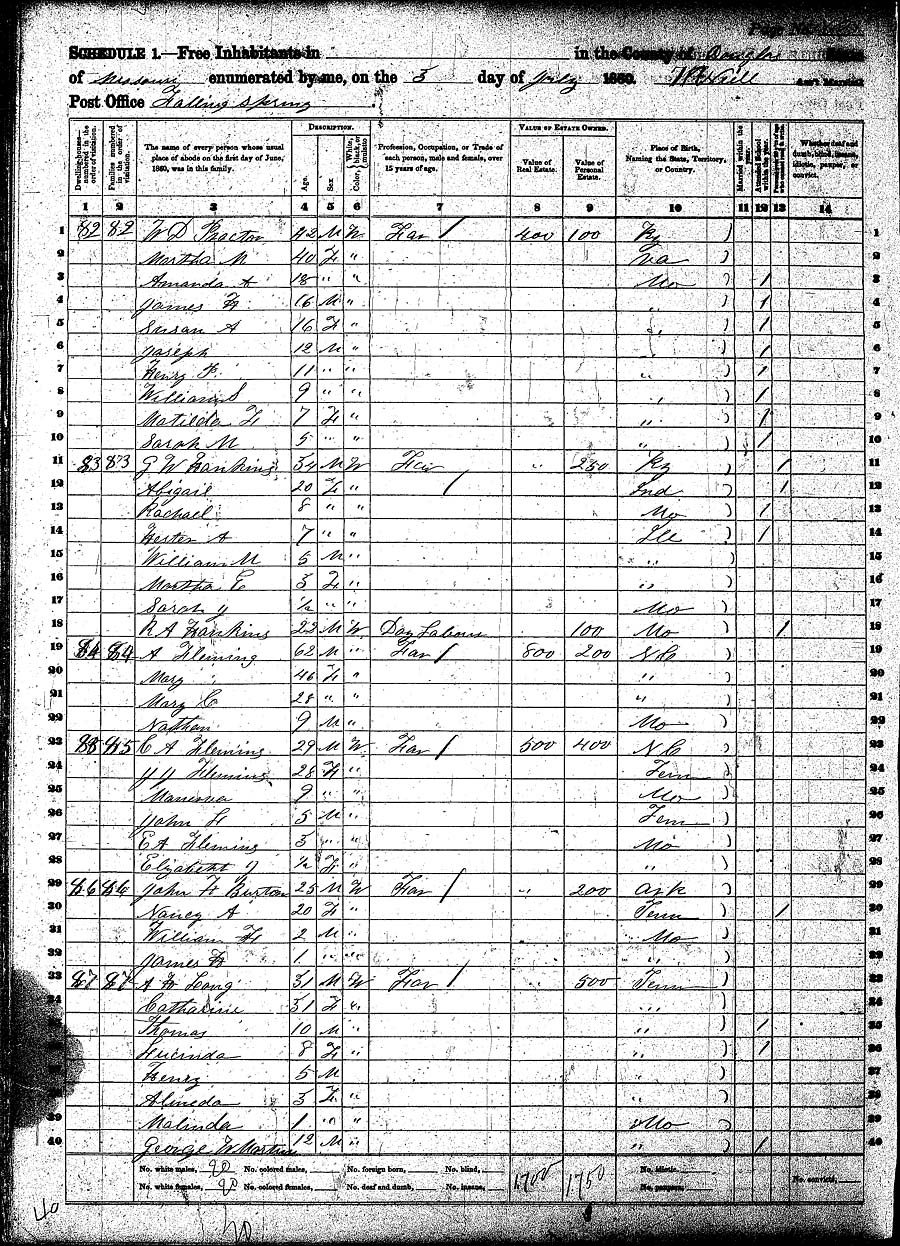 SCHEDULE 1.—Free Inhabitants in in the County of Douglas State
of Missouri enumerated by me, on the 3 day of July 1860. Ass't Marshal
Post Office Falling Spring
Dwelling-houses—numbered in the order of visitation.
Families numbered in the order of visitation.
The name of every person whose usual place of abode on the first day of June, 1860, was in this family.
DESCRIPTION.
Age.
Sex
Color, White, black, or mulatto
Profession, Occupation, or Trade of each person, male and female, over 15 years of age.
VALUE OF ESTATE OWNED.
Value of Real Estate.
Value of Personal Estate.
Place of Birth, Naming the State, Territory, or Country.
Married within the year.
Attended School within the year.
Whether deaf and dumb, blind, insane, idiotic, pauper, or convict.
1 2 3 4 5 6 7 8 9 10 11 12 13 14
1 82 82 W D Proctor 42 M W Far / 400 100 Ky ) 1
2 Martha M 40 F " Va ) 2
3 Amanda A 18 " " Mo ) / 3
4 James F 16 M " " ) / 4
5 Susan A 16 F " " ) / 5
6 Joseph 12 M " ) / 6
7 Henry P. 11 " " " ) / 7
8 William S 9 " " " ) / 8
9 Matilda F 7 F " " ) / 9
10 Sarah M 5 " " " ) / 10
11 83 83 G W Hankins 34 M W Far " 250 Ky ) / 11
12 Abigail 20 F " / Ind ) / 12
13 Rachael 8 " " Mo ) / 13
14 Hester A 7 " " Ill ) / 14
15 William M 5 M " " ) 15
16 Martha E 3 F " " ) 16
17 Sarah J ½ " " Mo ) 17
18 R A Hankins 22 M W Day Labour 100 Mo ) / 18
19 84 84 A Fleming 62 M " Far / 800 200 N C ) 19
20 Mary " 46 F " " ) 20
21 Mary C 28 " " " ) 21
22 Nathan 9 M " Mo ) 22
23 85 85 C A Fleming 29 M W Far / 500 400 N C ) 23
24 J J Fleming 28 F " Tenn ) 24
25 Manerva 9 " " Mo ) 25
26 John F 5 M " Tenn ) 26
27 E A Fleming 3 " " Mo ) 27
28 Elizabeth J ½ F " " ) 28
29 86 86 John H Burton 25 M W Far / " 200 Ark ) 29
30 Nancy A 20 F " Tenn ) / 30
31 William H 2 M " Mo ) 31
32 James 1 " " " ) 32
33 87 87 A Long 31 M W Far / " 500 Tenn ) 33
34 Catharine 31 F " " ) 34
Thomas 10 M " " ) / 35
Lucinda 8 F " " ) / 36
Henry 5 M " ) 37
38 Almeda 3 F " " ) 38
39 Malinda 1 " " Mo ) 39
40 George W Martin 12 M " " ) / 40
No. white males, 20 No. colored males, No. foreign born, No. blind, 1700 1750 No. idiotic.
No. white females, 20 No. colored females, No. deaf and dumb, No. insane, No. paupers, No. convicts,
40